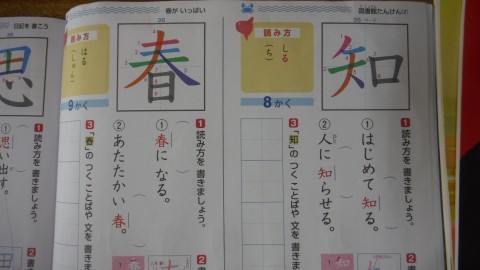 図書館たんけん
35
知
読み方
しる
(ち)
8かく
1 読み方を 書きましょう。
① はじめて 知る。
② 人に 知らせる。
3 「知」の つく ことばや 文を 書き
2 書
春が いっぱい
36
春
読み方
はる
(しゅん)
9かく
1 読み方を 書きましょう。
① 春に なる。
② あたたかい 春。
3 「春」の つく ことばや 文を 書き
2 書
日記を 書こう
思
1 読み方を 書きましょう。
① 思い出す。
2